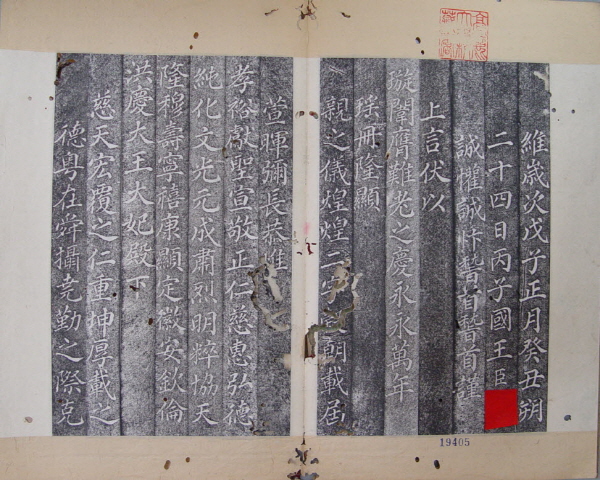 維歲次戊子正月癸丑朔
二十四日丙子國王臣
誠懽誠忭稽首稽首謹
上言伏以
璇闈膺難老之慶永永萬年
瑤冊隆顯
親之儀煌煌二字朝載屆
萱暉彌長恭惟
孝裕獻聖宣敬正仁慈惠弘德
純化文光元成肅烈明粹協天
隆穆壽寧禧康顯定徽安欽倫
洪慶大王大妃殿下
慈天宏覆之仁重坤厚載之
德粤在舜攝堯勤之際克
19405